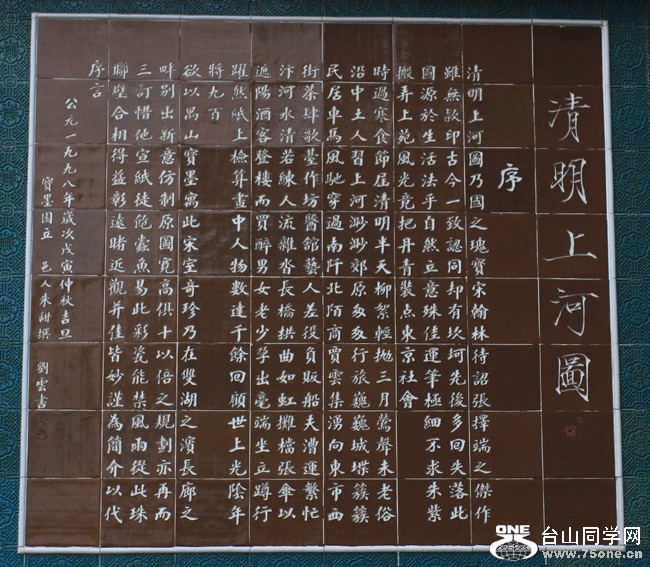 清明上河圖
序
清明上河圖乃國之瑰寶宋翰林待詔張擇端之傑作
雖無款印古今一致認同却有坎坷先後多回失落此
圖源於生活法乎自然立意殊佳運筆極細不求朱紫
搬弄上苑風光竟把丹青裝点東京社會
時過寒食節屆清明半天柳絮輕拋三月鶯聲未老俗
沿中土人習上河渺渺郊原匆匆行旅巍巍城堞簇簇
民居車馬風馳穿過南阡北陌商賈雲集湧向東市西
街茶肆歌臺作坊醫館藝人差役負販船夫漕運繁忙
汴河水清若練人流雜沓長橋拱曲如虹攤檔張傘以
遮陽酒客登樓而買醉男女老少孚出毫端坐立蹲行
躍然紙上檢算畫中人物數達千餘回顧世上光陰年
將九百
欲以禺山寶墨寫此宋室奇珍乃在雙湖之濱長廊之
畔別出新意仿制原圖寬高俱十以倍之規劃亦再而
三訂惜他宣紙徒飽蠹魚易此彩瓷能禁風雨從此珠
聯璧合相得益彰遠睹近觀并佳皆妙謹為簡介以代
序言
公元一九九八年歲次戊寅仲秋吉旦
寶墨園立 邑人朱 撰 劉雲書
ONE
75
台山同学网
www.75one.cn